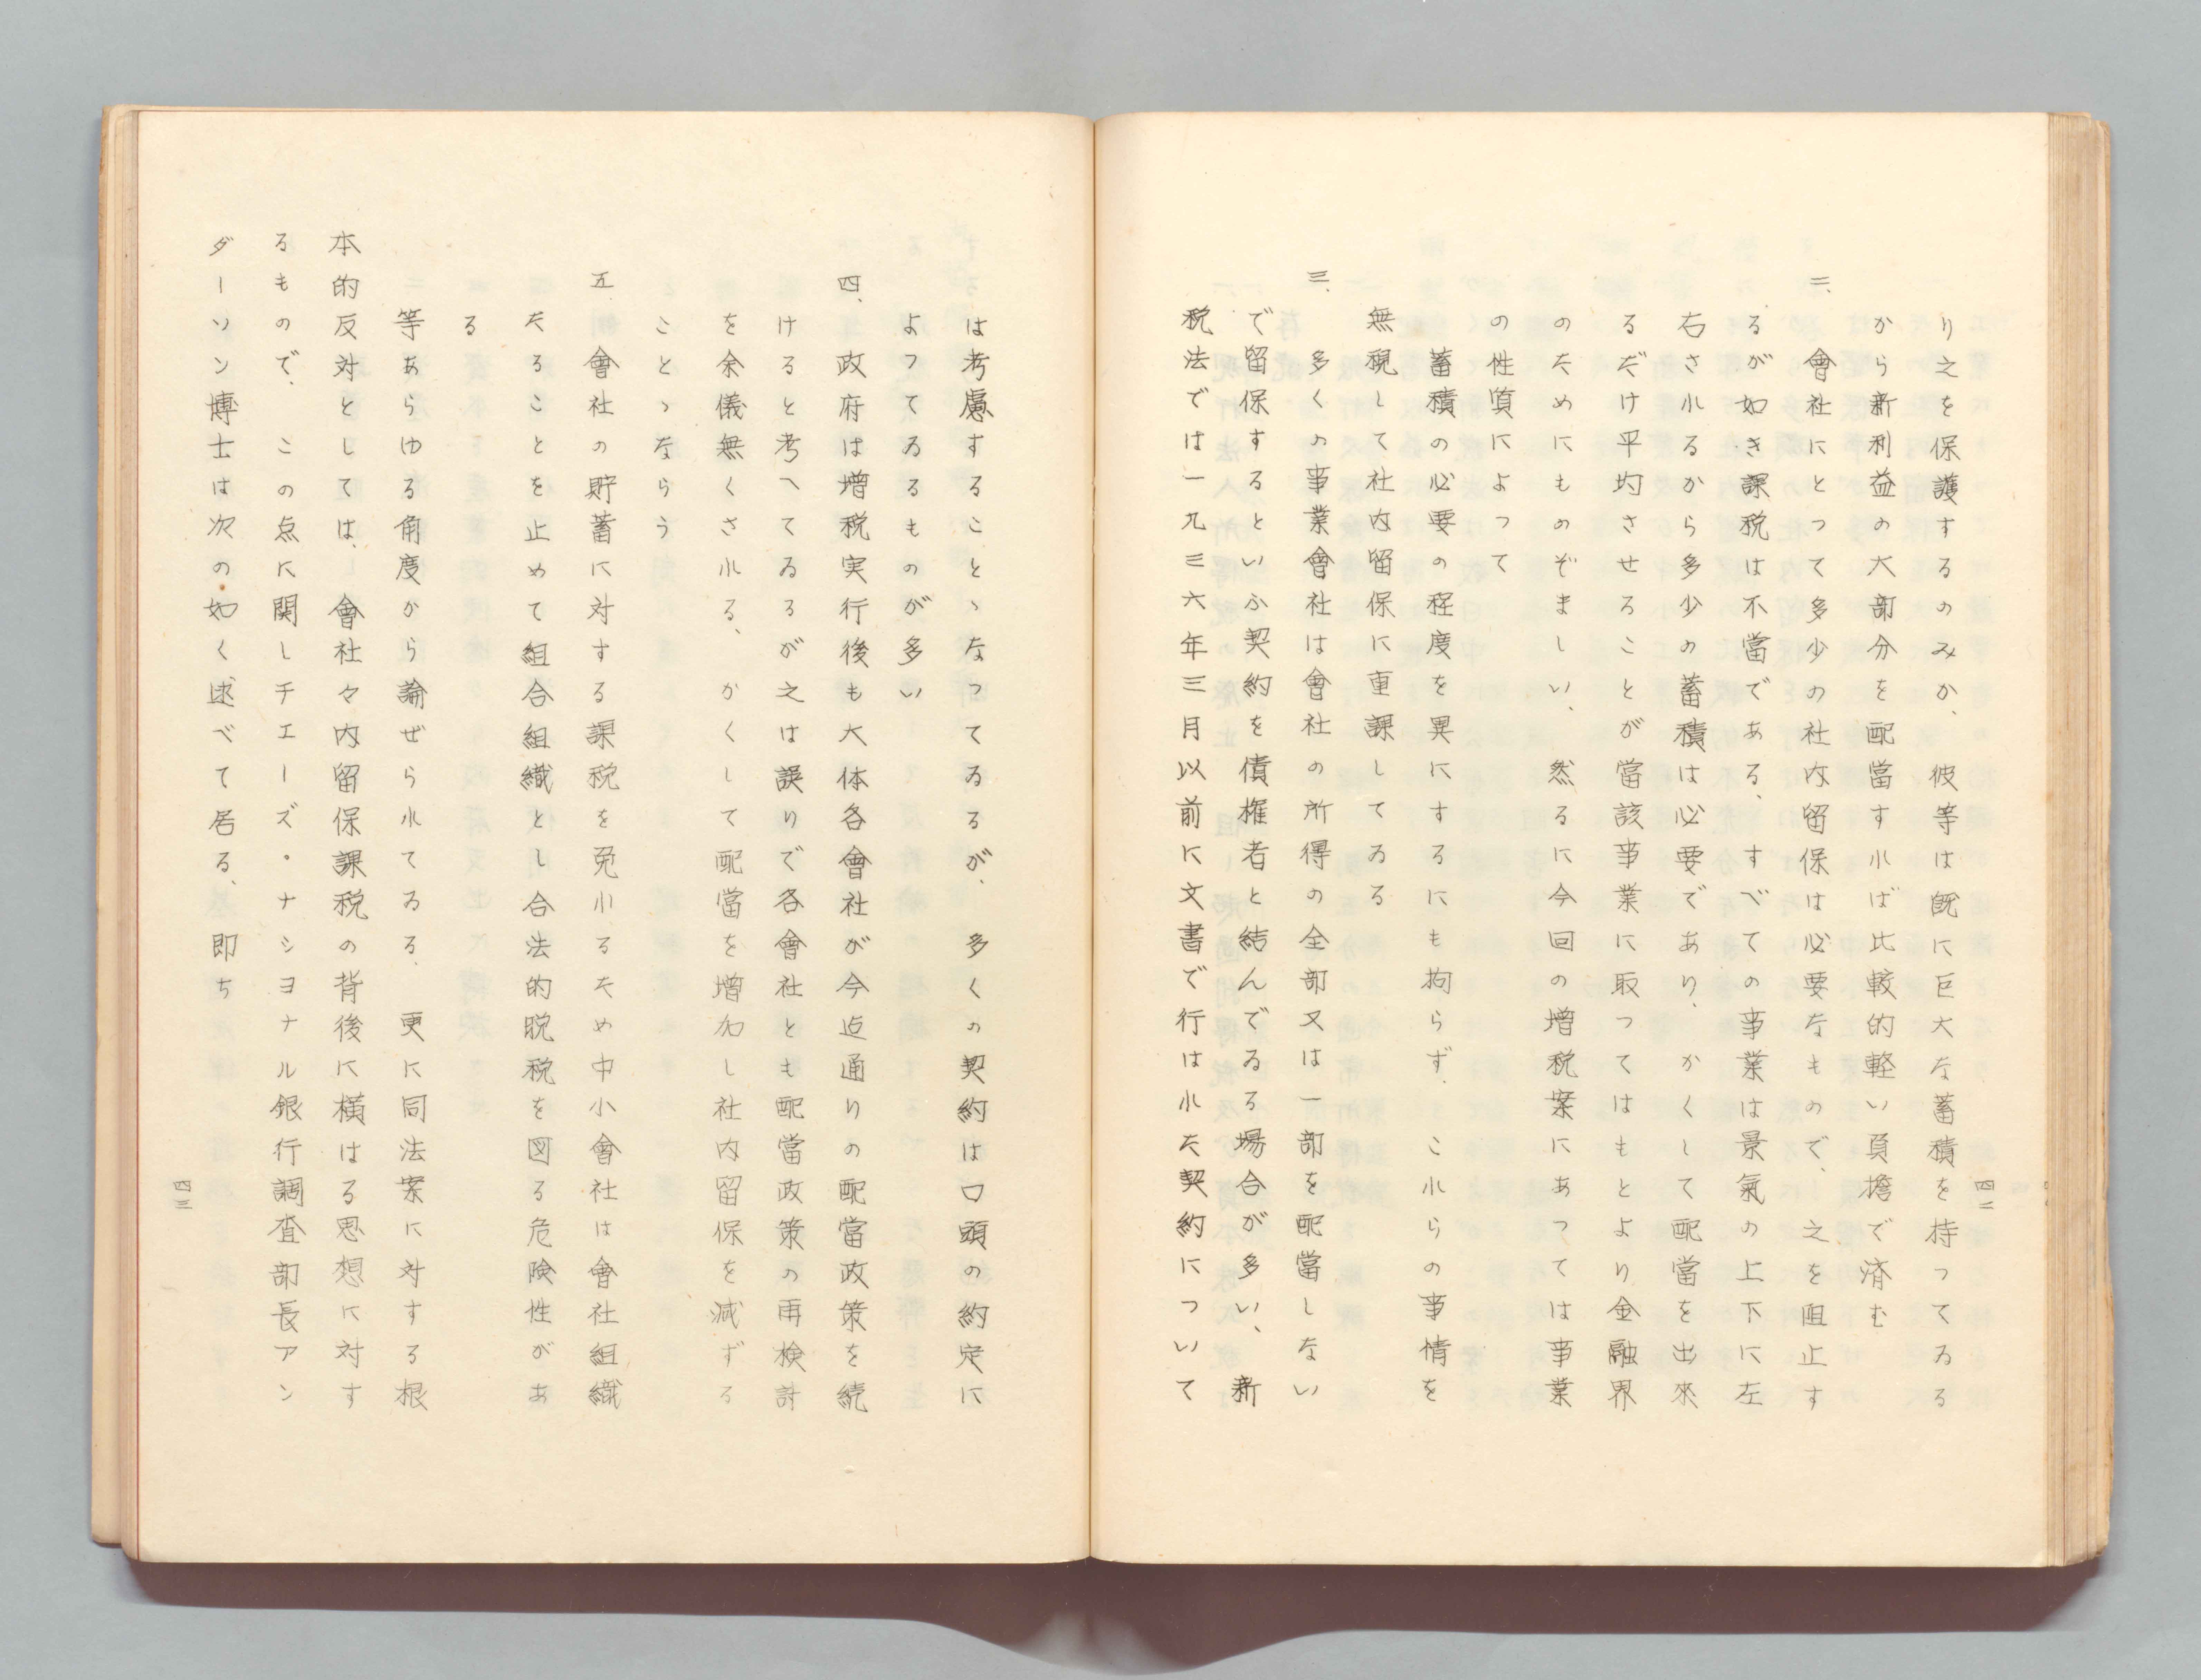 り之を保護するのみか、彼等は既に巨大な蓄積を持つてゐる
から新利益の大部分を配當すれば比較的軽い負擔で済む
二、會社にとつて多少の社内留保は必要なもので、之を阻止す
るが如き課税は不當である、すべての事業は景氣の上下に左
右されるから多少の蓄積は必要であり、かくして配當を出來
るだけ平均させることが當該事業に取つてはもとより金融界
のためにものぞましい、然るに今回の増税案にあつては事業
の性質によつて
蓄積の必要の程度を異にするにも拘らず、これらの事情を
無視して社内留保に重課してゐる
三、多くの事業會社は會社の所得の全部又は一部を配當しない
で留保するといふ契約を債権者と結んでゐる場合が多い、新
税法では一九三六年三月以前に文書で行はれた契約について
四二
は考慮することゝなつてゐるが、多くの契約は口頭の約定に
よつてゐるものが多い
四、政府は増税実行後も大体各會社が今迄通りの配當政策を続
けると考へてゐるが之は誤りで各會社とも配當政策の再検討
を余儀無くされる、かくして配當を増加し社内留保を減ずる
ことゝならう
五、會社の貯蓄に対する課税を免れるため中小會社は會社組織
たることを止めて組合組織とし合法的脱税を図る危険性があ
る
等あらゆる角度から論ぜられてゐる、更に同法案に対する根
本的反対としては、會社々内留保課税の背後に横はる思想に対す
るもので、この点に関しチエーズ・ナシヨナル銀行調査部長アン
ダーソン博士は次の如く述べて居る、即ち
四三